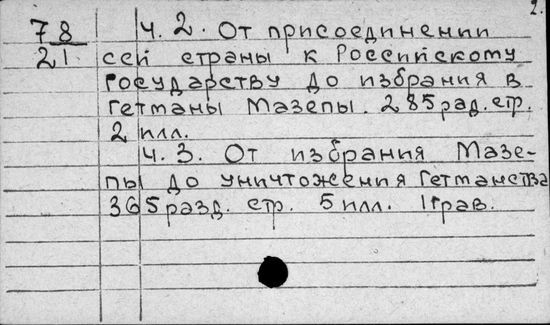 2.
78
21
ч. 2. От присоединении
сей страны к Российскому
государству до избрания в
гетманы Мазепы. 285 рад. стр.
2 илл.
ч. 3. От избрания Мазе-
пы до уничтожения Гетманства
365 разд. стр. 5 илл. 1 грав.